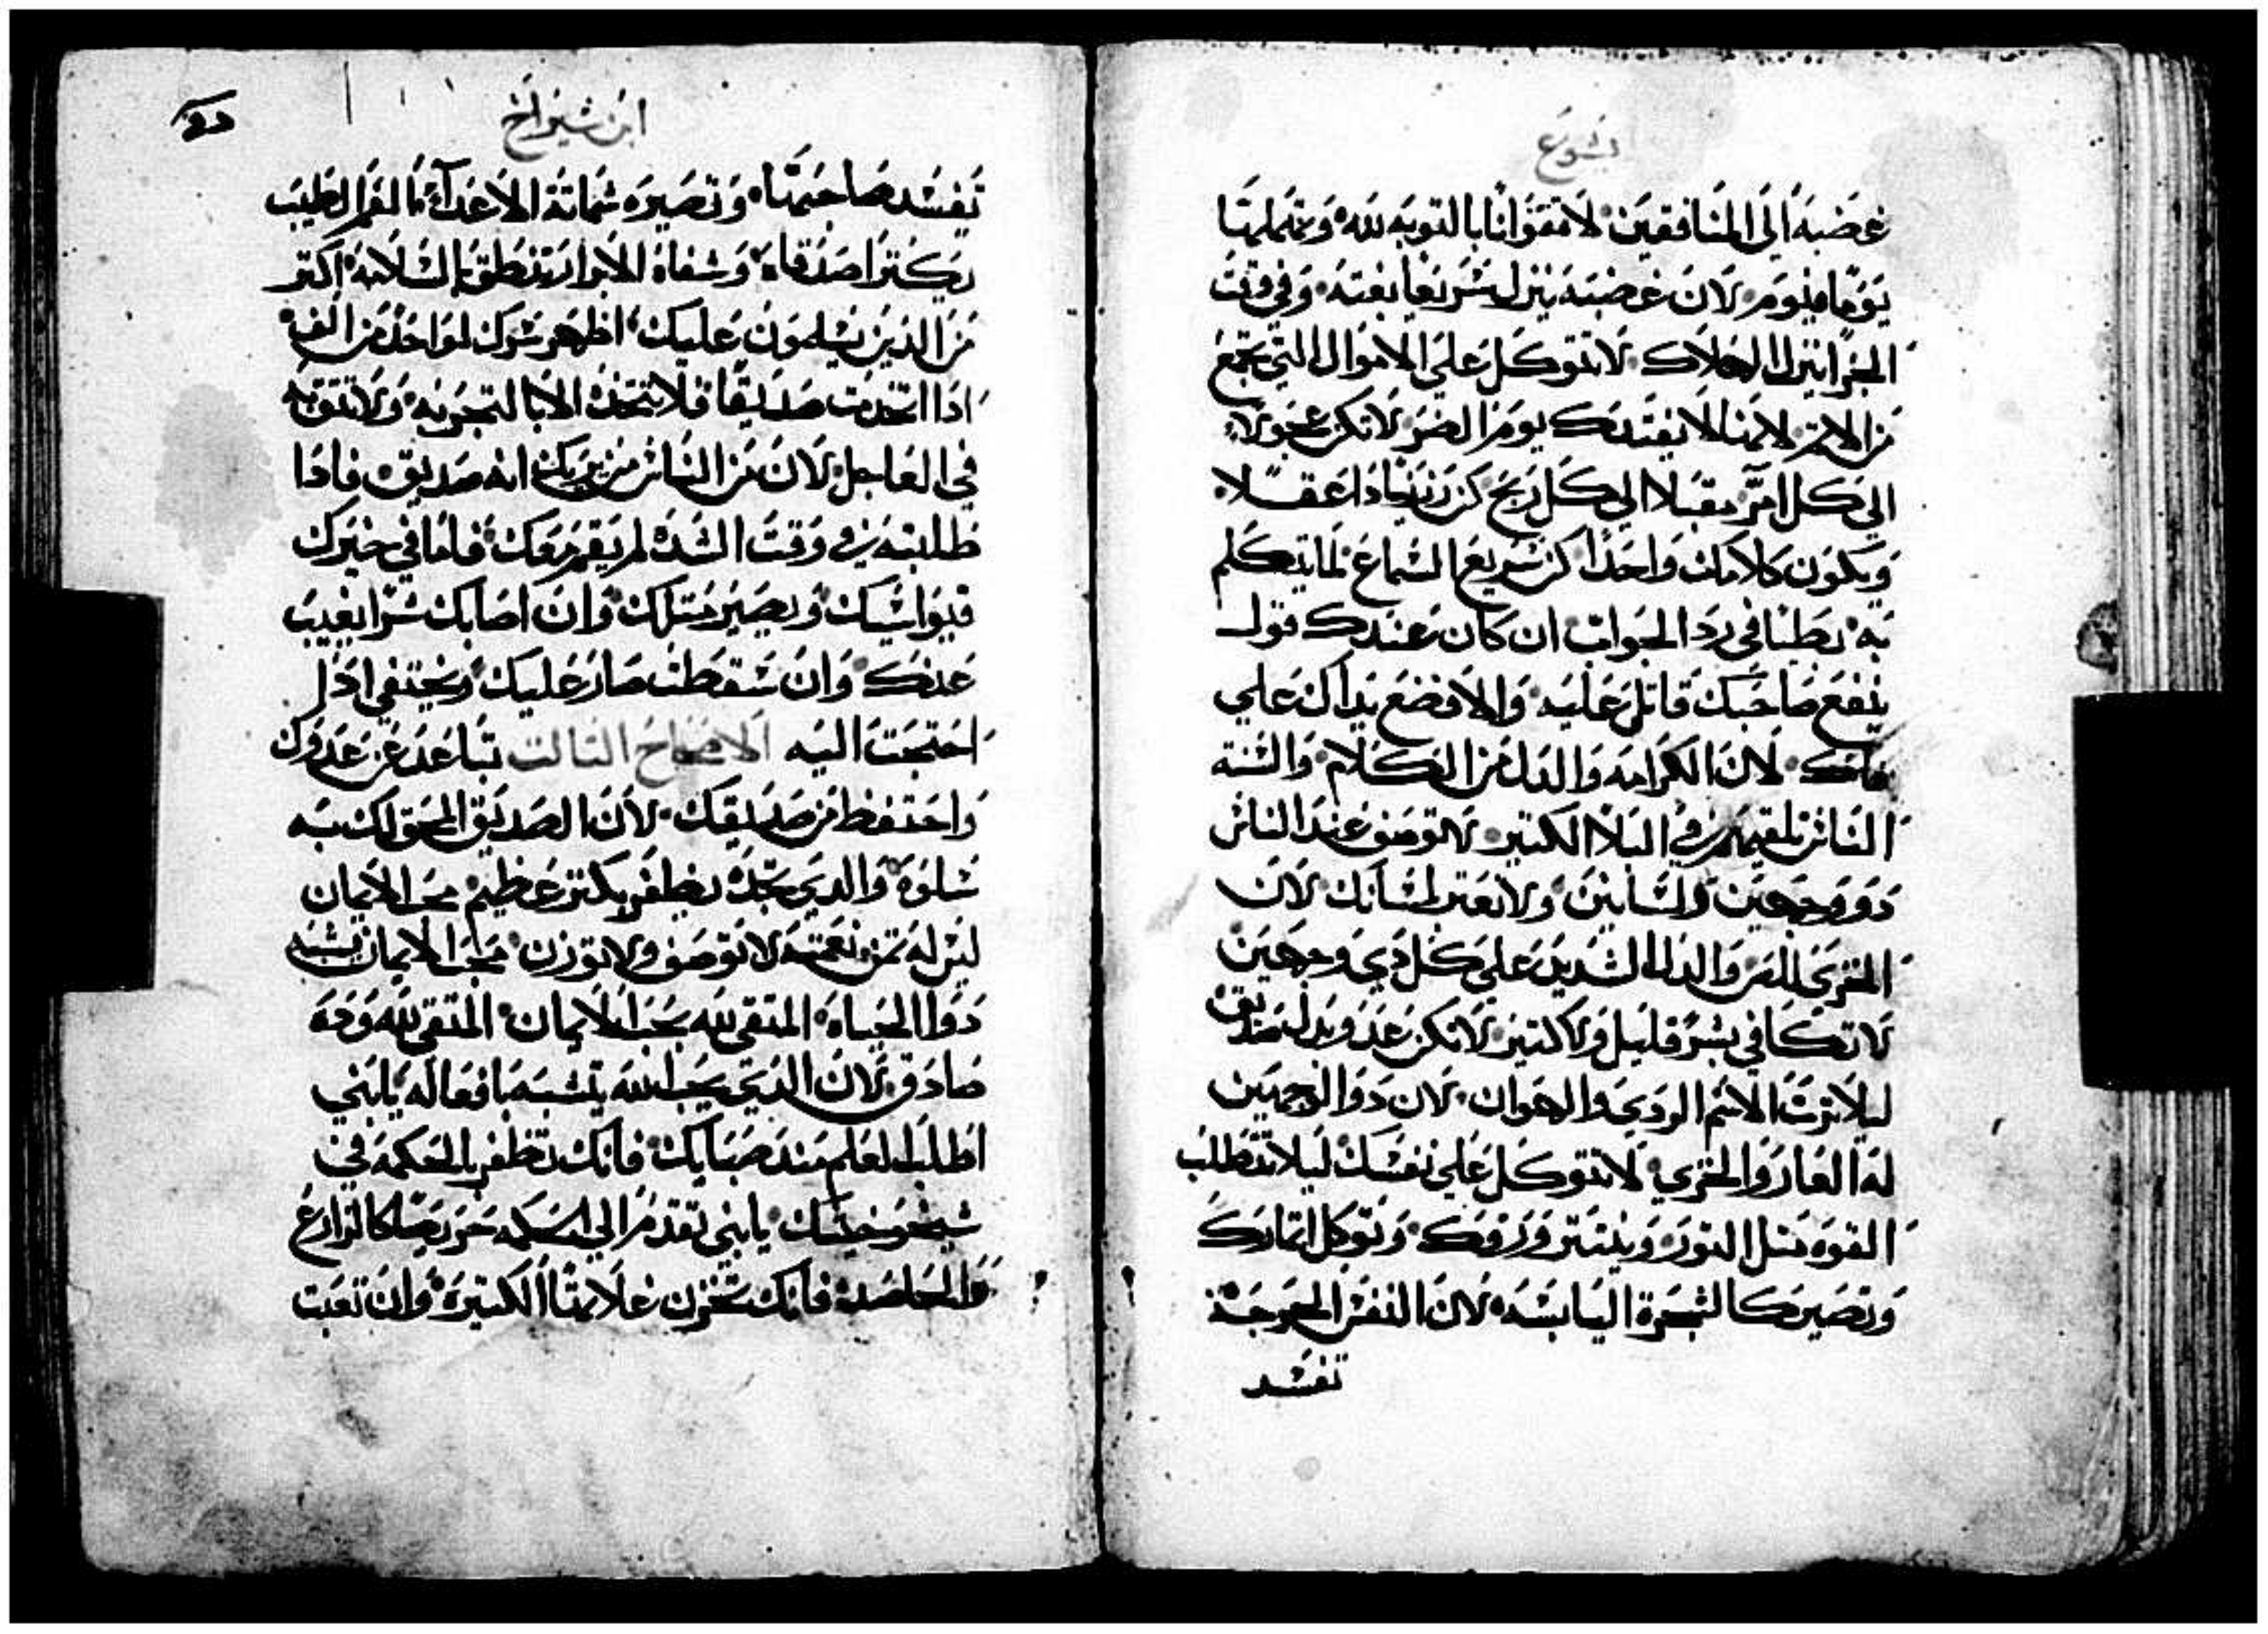 يشوع
غضبه الي المنافقين لا تتوانا بالتوبه لله وتهملها
يوما فيوم لان غضبه ينزل سريعا بغته وفي وقت
الجزا ينزل الهلاك لا تتوكل علي الاموال التي تجمع
من الاثم لانها لا تفيدك يوم الضر لا تكن عجولا
الي كل امر مقبلا الي كل ريح كن رزينا ذا عقلا
ويكون كلامك واحدا كن سريع السماع لما يتكلم
به بطيا في رد الجواب ان كان عندك قول
ينفع صاحبك قاتل عليه والا فضع يداك علي
فاك لان الكرامه والذل من الكلام والسنة
الناس تلقيهم في البلا الكتير لا توصف عند الناس
ذو وجهين ولسانين ولا تعتر لسانك لان
الخزي للص والذل الشديد علي كل ذي وجهين
لا تكافي بشر قليل ولا كتير لا تكن عدو بدل صديق
ليلا ترث الاسم الردي والهوان لان ذوا الوجهين
له العار والخزي لا تتوكل علي نفسك ليلا تتطلب
القوه متل التور وينتتر ورقك وتوكل اتمارك
وتصير كالشجرة اليابسه لان النفس الحرجة
تفسد
ابن شيراخ
تفسد صاحبها وتصيره شماتة الاعداء اما الفم الطيب
يكتر اصدقاه وشفاة الابرار تنطق بالسلامه اكتر
من الذين يسلمون عليك اظهر سرك لواحد من الف
اذا اتخذت صديقا فلا تتخذه الا بالتجربه ولا تتق به
في العاجل لان من الناس من يريك انه صديق فاذا
طلبته في وقت الشده لم يقم معك فاما في خيرك
فيواسيك ويصير متلك وان اصابك شرا يغيب
عنك وان سقطت صار عليك ويختفي اذا
احتجت اليه الاصحاح التالت تباعد عن عدوك
واحتفظ من صديقك لان الصديق المحق لك به
سلوة والذي يجده يظفر بكنز عظيم محب الايمان
ليس له تمن نعمته لا توصف ولا توزن محب الايمان يشبه
دوا الحياة المتقي لله يحب الايمان المتقي لله وده
صادق لان الذي يحب الله يتشبه بافعاله يا بني
اطلب العلم منذ صباك فانك تظفر بالحكمه في
شيخوختك يا بني تقدم الي الحكمه حريصا كالزارع
والحاصد فانك تخزن غلاتها الكتيرة وان تعبت